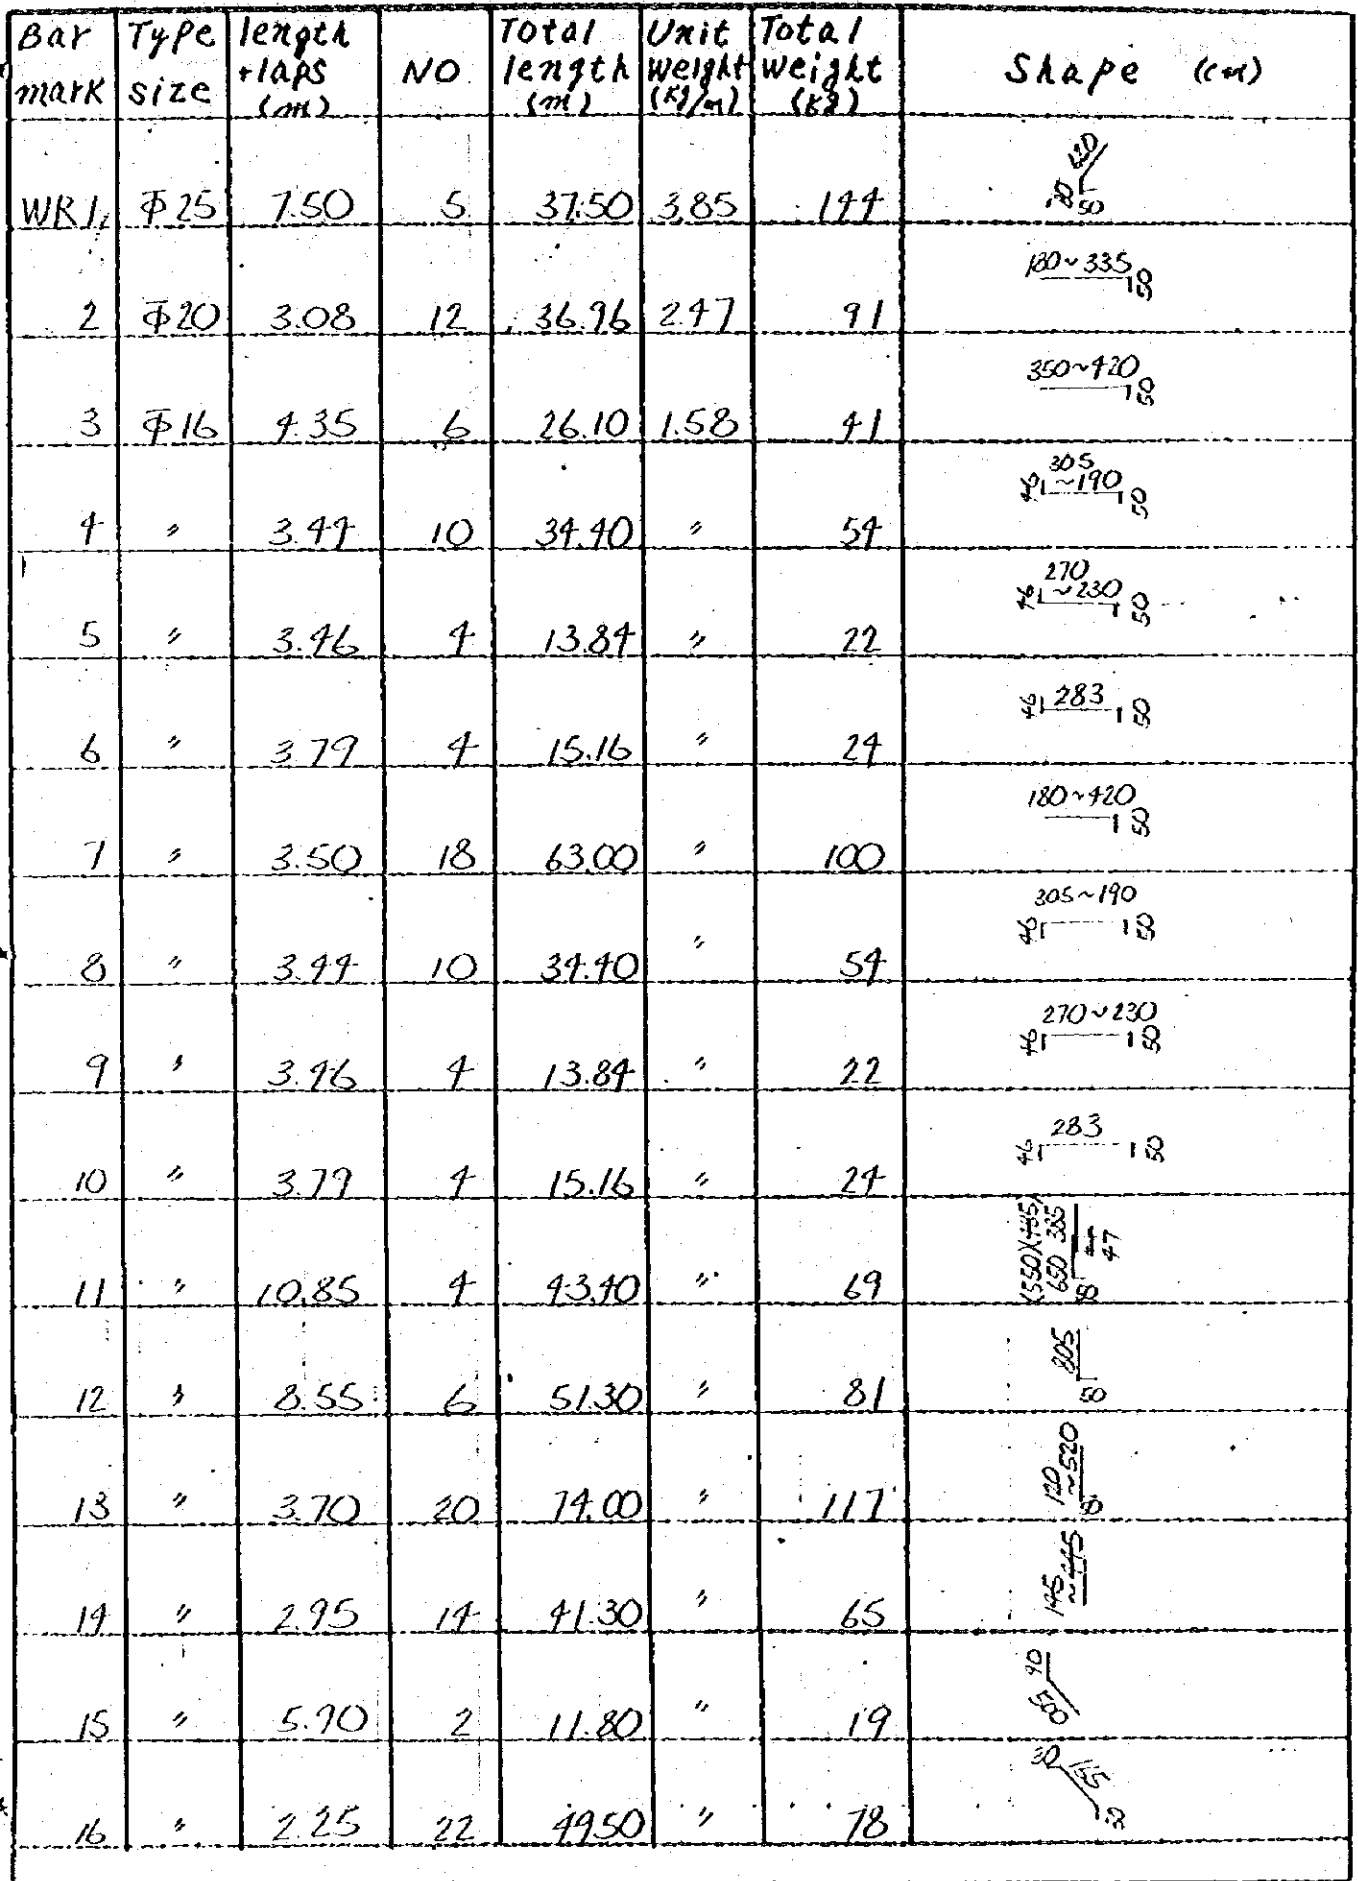 Bar mark Type size length +laps (m) NO. Total length (m) Unit weight (kg/m) Total weight (kg) Shape (cm)
WR1 Φ25 7.50 5 37.50 3.85 144 50
2 Φ20 3.08 12 36.96 2.47 91 180~335 50
3 Φ16 4.35 6 26.10 1.58 41 350~420 50
4 〃 3.44 10 34.40 〃 54 46 305~190 50
5 〃 3.46 4 13.84 〃 22 46 270~230 50
6 〃 3.79 4 15.16 〃 24 46 283 50
7 〃 3.50 18 63.00 〃 100 180~420 50
8 〃 3.44 10 34.40 〃 54 46 305~190 50
9 〃 3.46 4 13.84 〃 22 46 270~230 50
10 〃 3.79 4 15.16 〃 24 46 283 50
11 〃 10.85 4 43.40 〃 69 (550)(435) 650 385 47 50
12 〃 8.55 6 51.30 〃 81 50 805
13 〃 3.70 20 74.00 〃 117 120~520 50
14 〃 2.95 14 41.30 〃 65 145~445
15 〃 5.90 2 11.80 〃 19 500 90
16 〃 2.25 22 49.50 〃 78 30 165 30